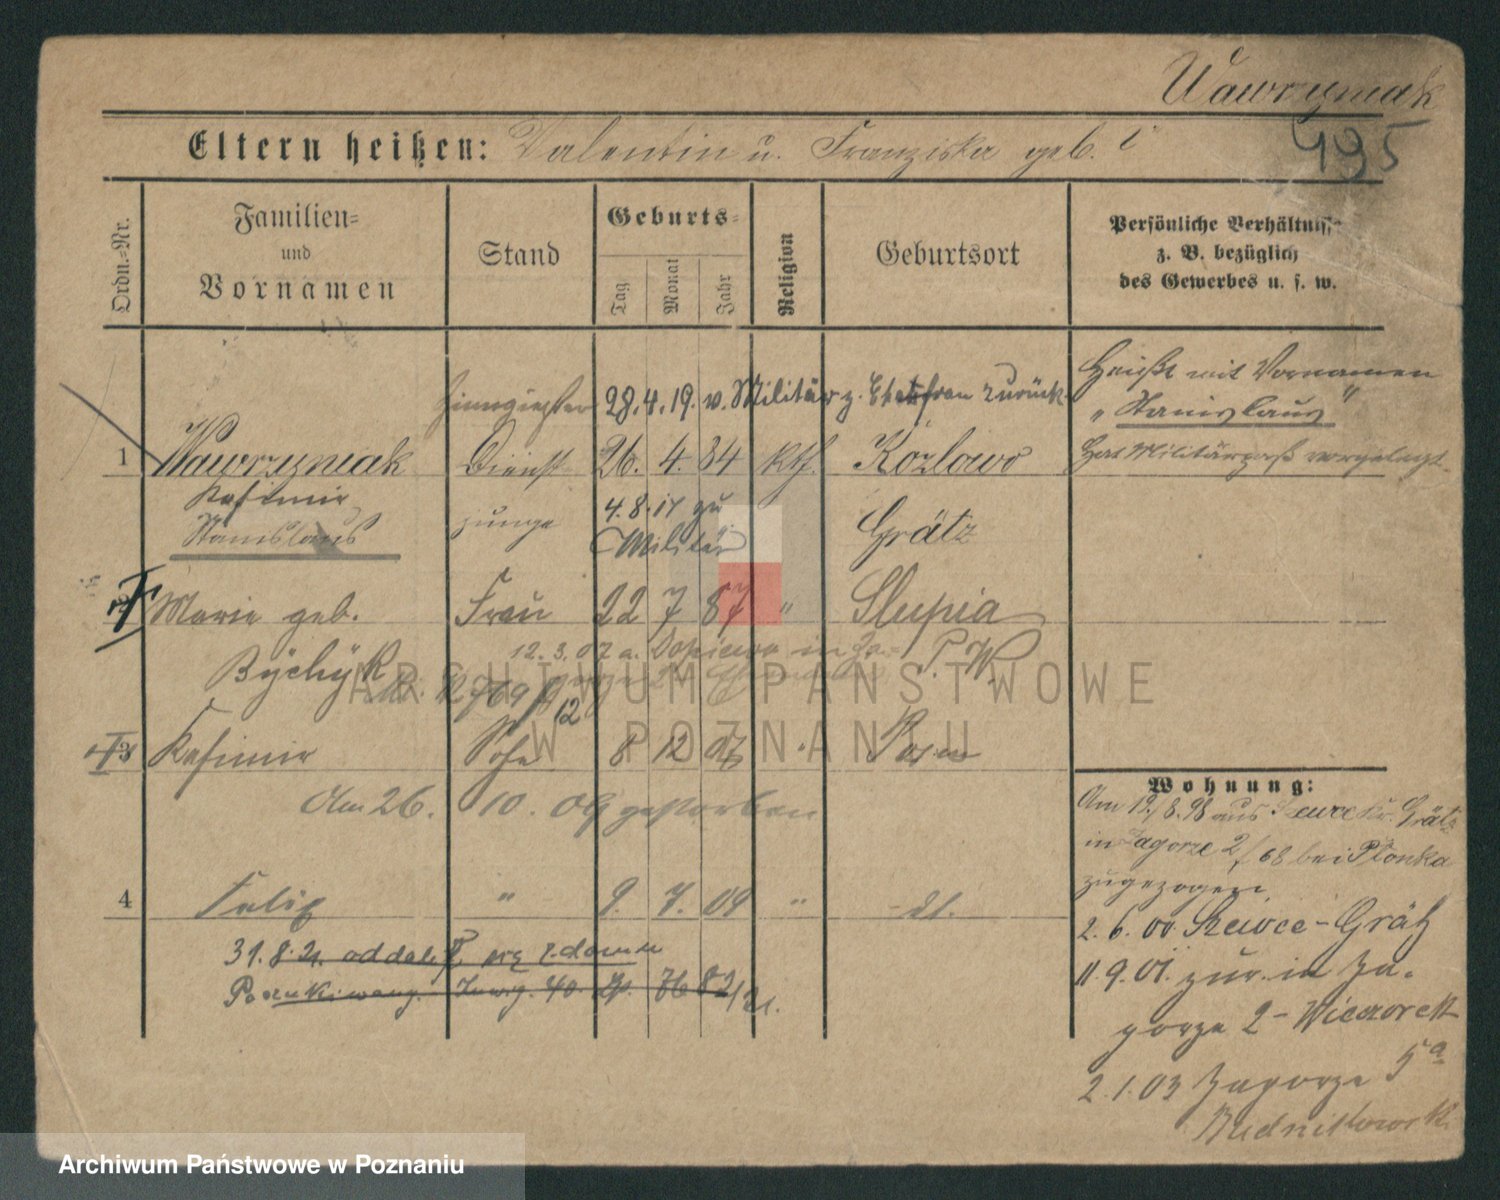 Wawrzyniak
495
Eltern heißen: Valentin u. Franziska geb.
Ordn.-Nr.
Familien-
und
Vornamen
Stand
Geburts-
Tag
Monat
Jahr
Religion
Geburtsort
Persönliche Verhältnisse
z. B. bezüglich
des Gewerbes u. s. w.
28.4.19. v. Militär z. Ehefrau zurück
Heißt mit Vornamen
"Stanislaus"
Hat Militärpaß vorgelegt.
1 Wawrzyniak Dienst 26. 4. 84 kth. Kozlowo
Kasimir
Stanislaus junge 4.8.17 zu Grätz
Militär
2 Marie geb. Frau 22 7 87 " Slupia
Bychÿk
12.3.07 a. in P.W.
12
3 Kasimir Sohn 8 12 Posen
Am 26. 10. 09 gestorben
4 Felix " 9. 7. 09 " dt.
31.8.21. oddal.
Poszukiwany 40. 76 82/21.
Wohnung:
Am 19./8.98 aus Kr. Grätz
in Zagorze 2/68 bei Plonka
zugezogen
2.6.00. Szewce-Grätz
11.9.01. zur. in Za-
gorze 2 - Wieczorek
2.1.03 Zagorze 5a
ARCHIWUM PAŃSTWOWE
W POZNANIU
Archiwum Państwowe w Poznaniu